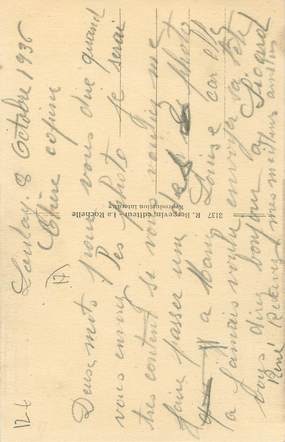 Launay 8 Octobre 1936
Chère copine
Deux mots pour vous dire quand
vous enverrez les photo je serai
très content si vous voulez me
faire passer une photo
a Marie Louise car elle
a jamais voulu envoyer sa tête
vous direz bonjour a Sicard
Recevez mes meilleurs amitiés
René
(17)
126
3137 - R. Bergevin, éditeur - La Rochelle
Reproduction Interdite